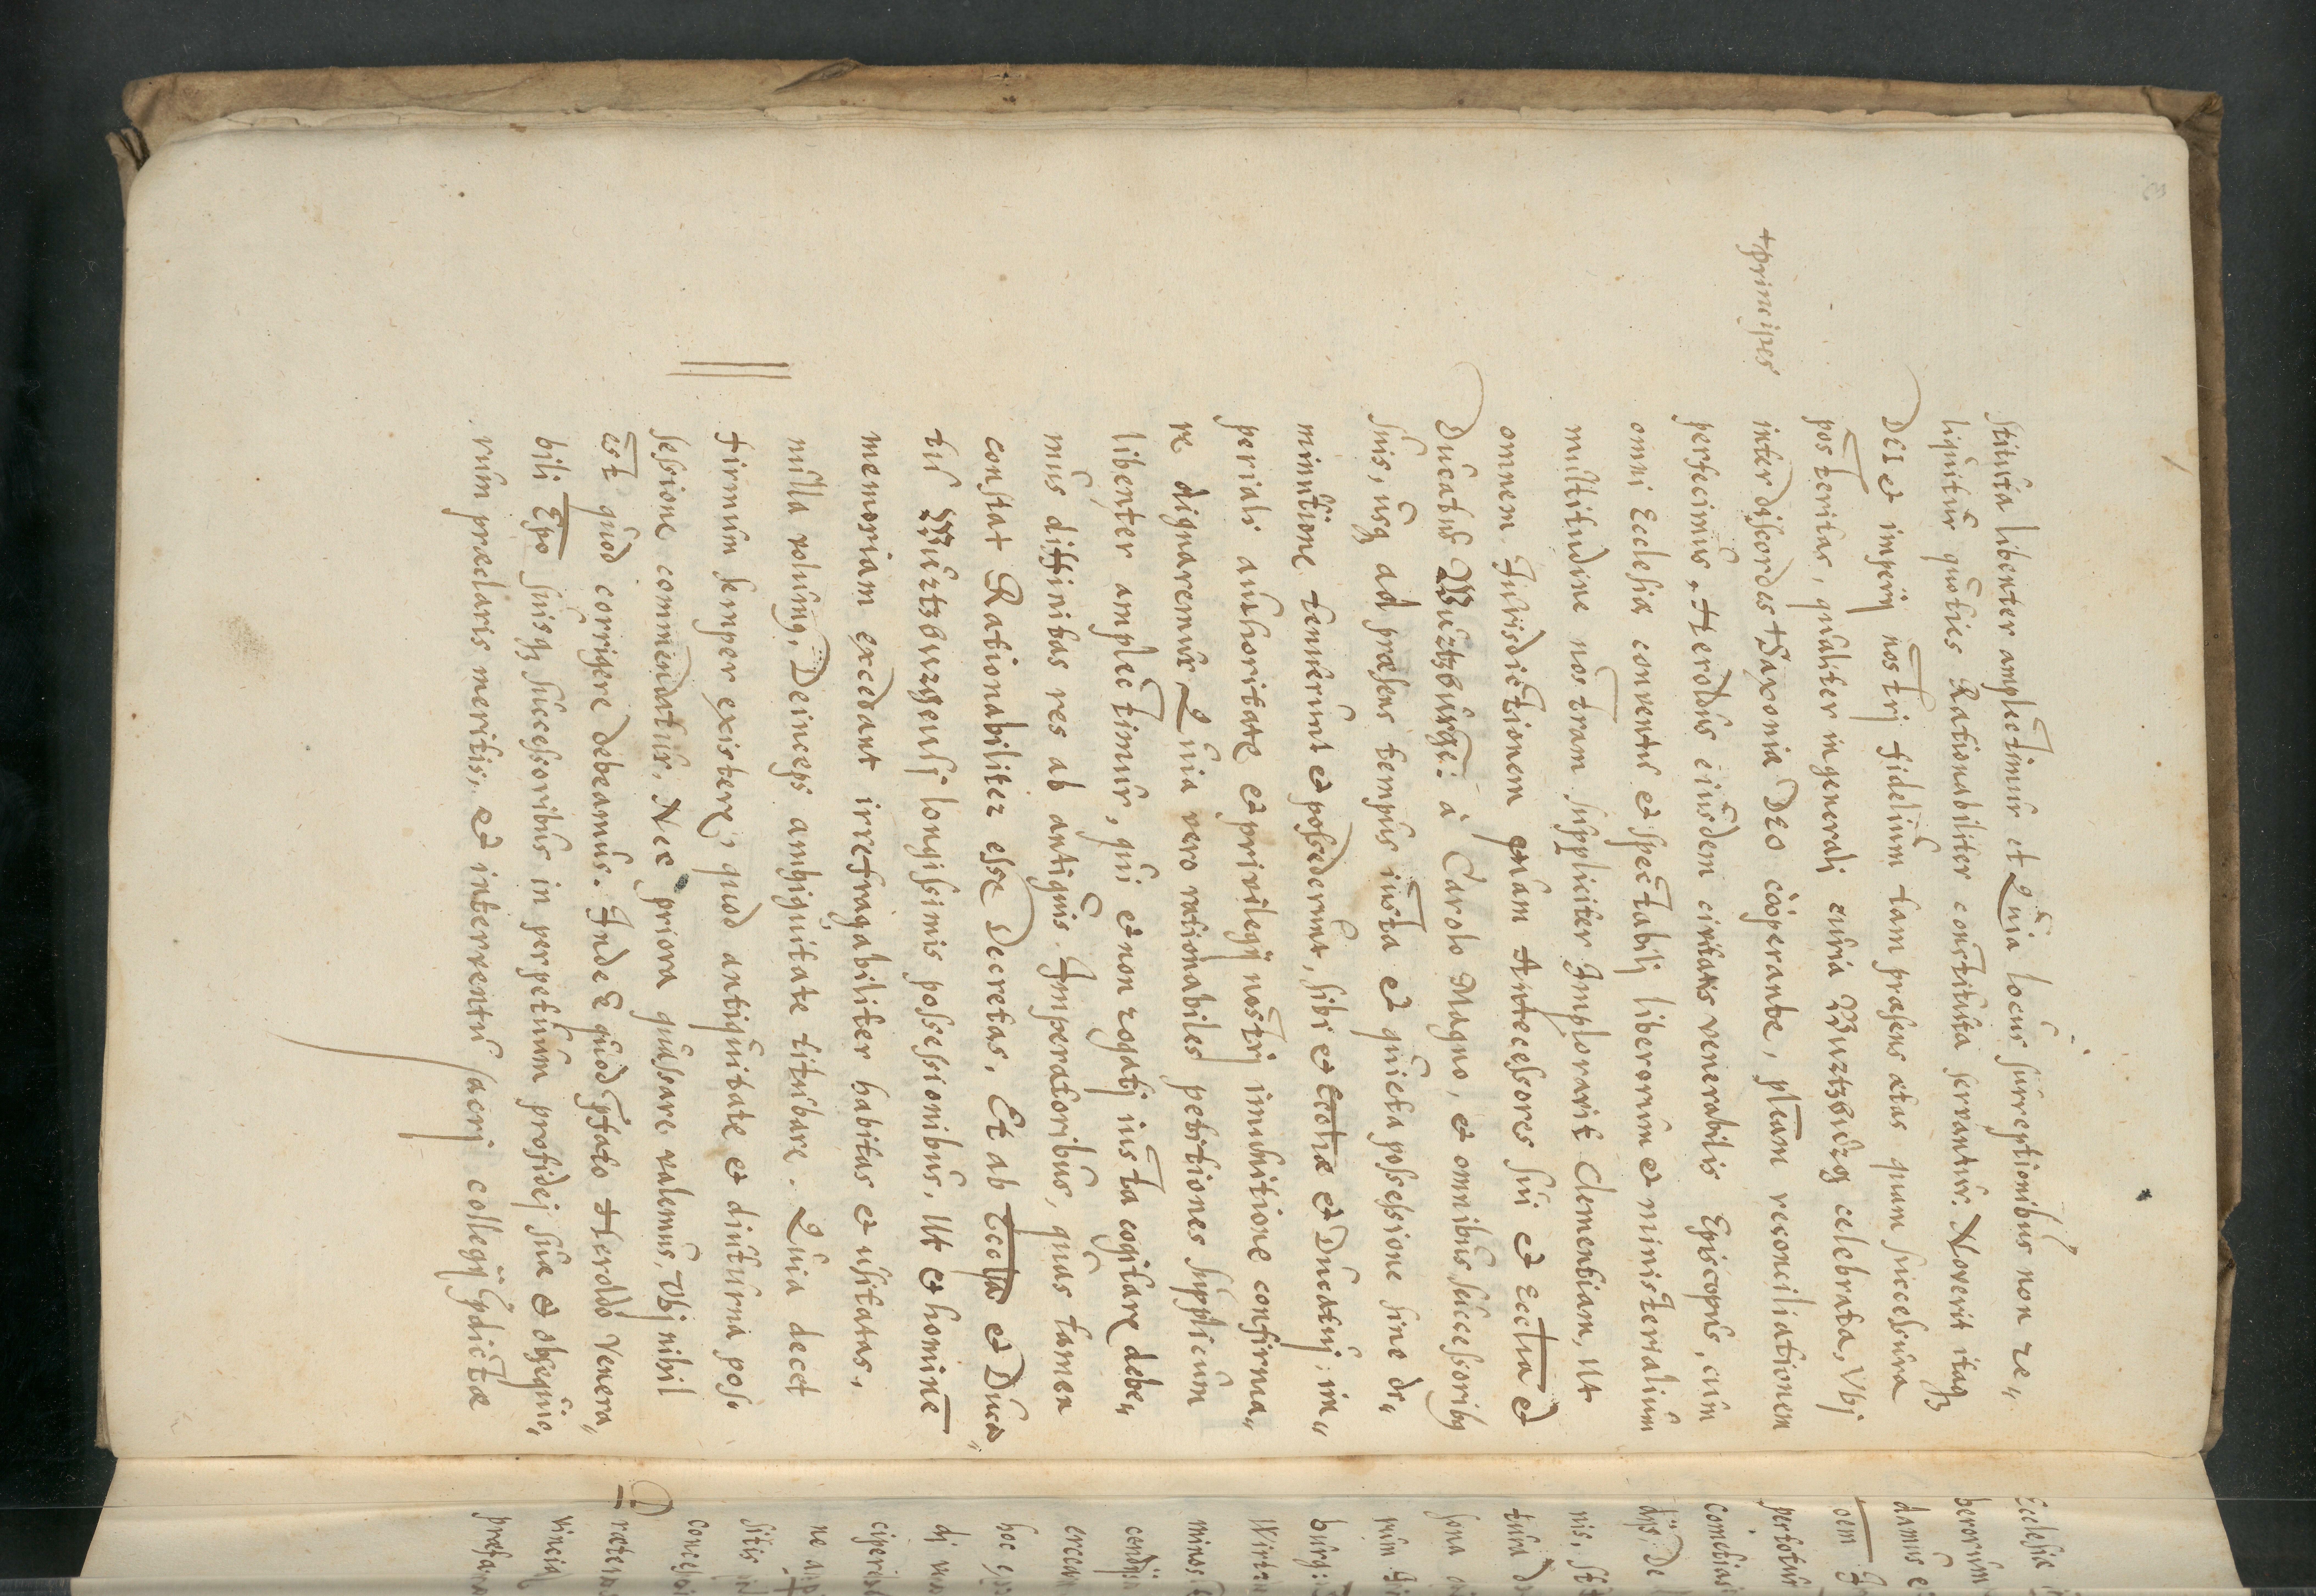 stituta libenter amplectimur et Quia locus surreptionibus non re„
liquitur quoties Rationabiliter constituta servantur. Noverit itaqz
DEI et imperij nostrj fidelium tam præsens ætas quam successura
posteritas, qualiter in generalj curia Wurtzburg celebrata, Vbj
+principes
inter discordes + Saxoniæ DEO cooperante, plenam reconciliationem
perfecimus. Heroldus eiusdem civitatis venerabilis Episcopus, cum
omni Ecclesiæ conventu et spectabilj liberorum et ministerialium
multitudine nostram suppliciter Imploravit Clementiam, ut
omnem Jurisdictionem quam Antecessores sui et Ecclīa et
Ducatus Wirtzburgē: à Carolo Magno, et omnibus successoribq
suis, usqz ad præsens tempus iusta et quieta possessione sine di„
minutione tenuerunt et possederunt, sibi et Ecclīæ et Ducatuj: im„
periali authoritate et privilegij nostrj innuitione confirma„
re dignaremur. Quia vero rationabiles petitiones supplicum
libenter amplectimur, qui et non rogatj iusta cogitare debe„
mus diffinitas res ab antiquis Imperatoribus, quas tamen
constat Rationabiliter esse Decretas, Et ab Eccłia et Duca„
tu Wurtzburgensj longissimis possessionibus, Ut et hominē
memoriam excedant irrefragabiliter habitas et usitatas,
nulla volumq, Deinceps ambiguitate titubare. Quia decet
firmum semper existere, quod antiquitate et diuturna pos„
sessione commendatur. Nec priora quassare valemus, Vbj nihil
est quod corrigere debeamus. Inde E quod pfato Heroldo Venera„
bili Epo suisqz successoribus in perpetuum profidej suæ et obsequio„
rum præclaris meritis, et interventu sacrj collegij pdictæ
Ecclesiæ
berorum
damus e
oem
cometias
dijs. De
nis, sit
burg:
mino
cendij
hoc
di
ciperis
ne
sitis
Præterea
vincia